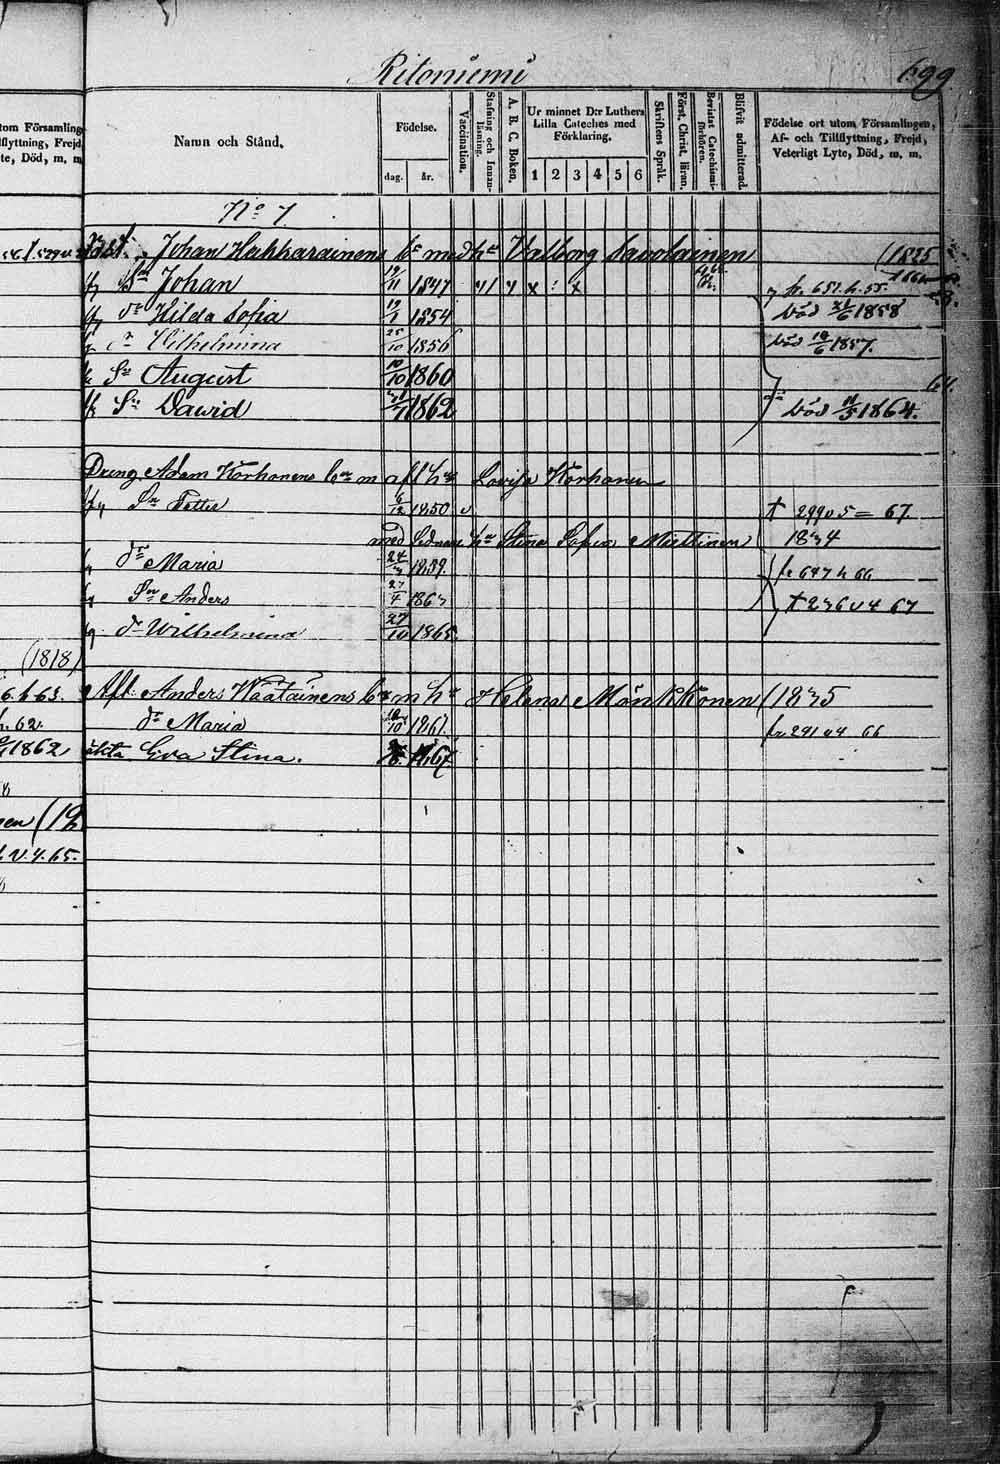 Ritoniemi 699
tom Församling
flyttning, Frejd
te, Död, m. m.
Namn och Stånd.
Födelse.
dag. år.
Vaccination.
Stafning och Innanläsning.
A. B. C. Boken.
Ur minnet D:r Luthers Lilla Cateches med Förklaring.
1 2 3 4 5 6
Skriftens Språk.
Först. Christ. läran.
Bevistat Catechismiförhören.
Blifvit admitterad.
Födelse ort utom Församlingen,
Af- och Tillflyttning, Frejd,
Veterligt Lyte, Död, m. m.
No 7
Johan Hakkarainens bn med hu Valborg Savolainen (1825
Sn Johan 19/11 1847 x : x fr. 651. h. 55.
dr Hilda Sofia 19/1 1854 död 21/6 1858
dr Wilhelmina 25/10 1856 död 18/6 1857.
Sn August 10/10 1860
Sn Dawid 1862 död 11/5 1864. 64.
Dreng Adam Korhonens bn m afl hu Lovisa Korhonen
Sn Petter 6/12 1850 v † 299 v 5 = 67.
med Sednare hu Stina Sofia Miettinen 1834
dr Maria 1859. fr 647 h 66
Sn Anders 27/4 1863 † 236 v 4 67
dr Wilhelmina 27/10 1865.
(1818)
6. h 63. Afl. Anders Waatainens bn m hu Helena Mönkkönen (1835
h. 62. dr Maria 1861. fr 291 v 4 66
1862 äkta Eva Stina. 1867
nen (19
v. 4. 65.